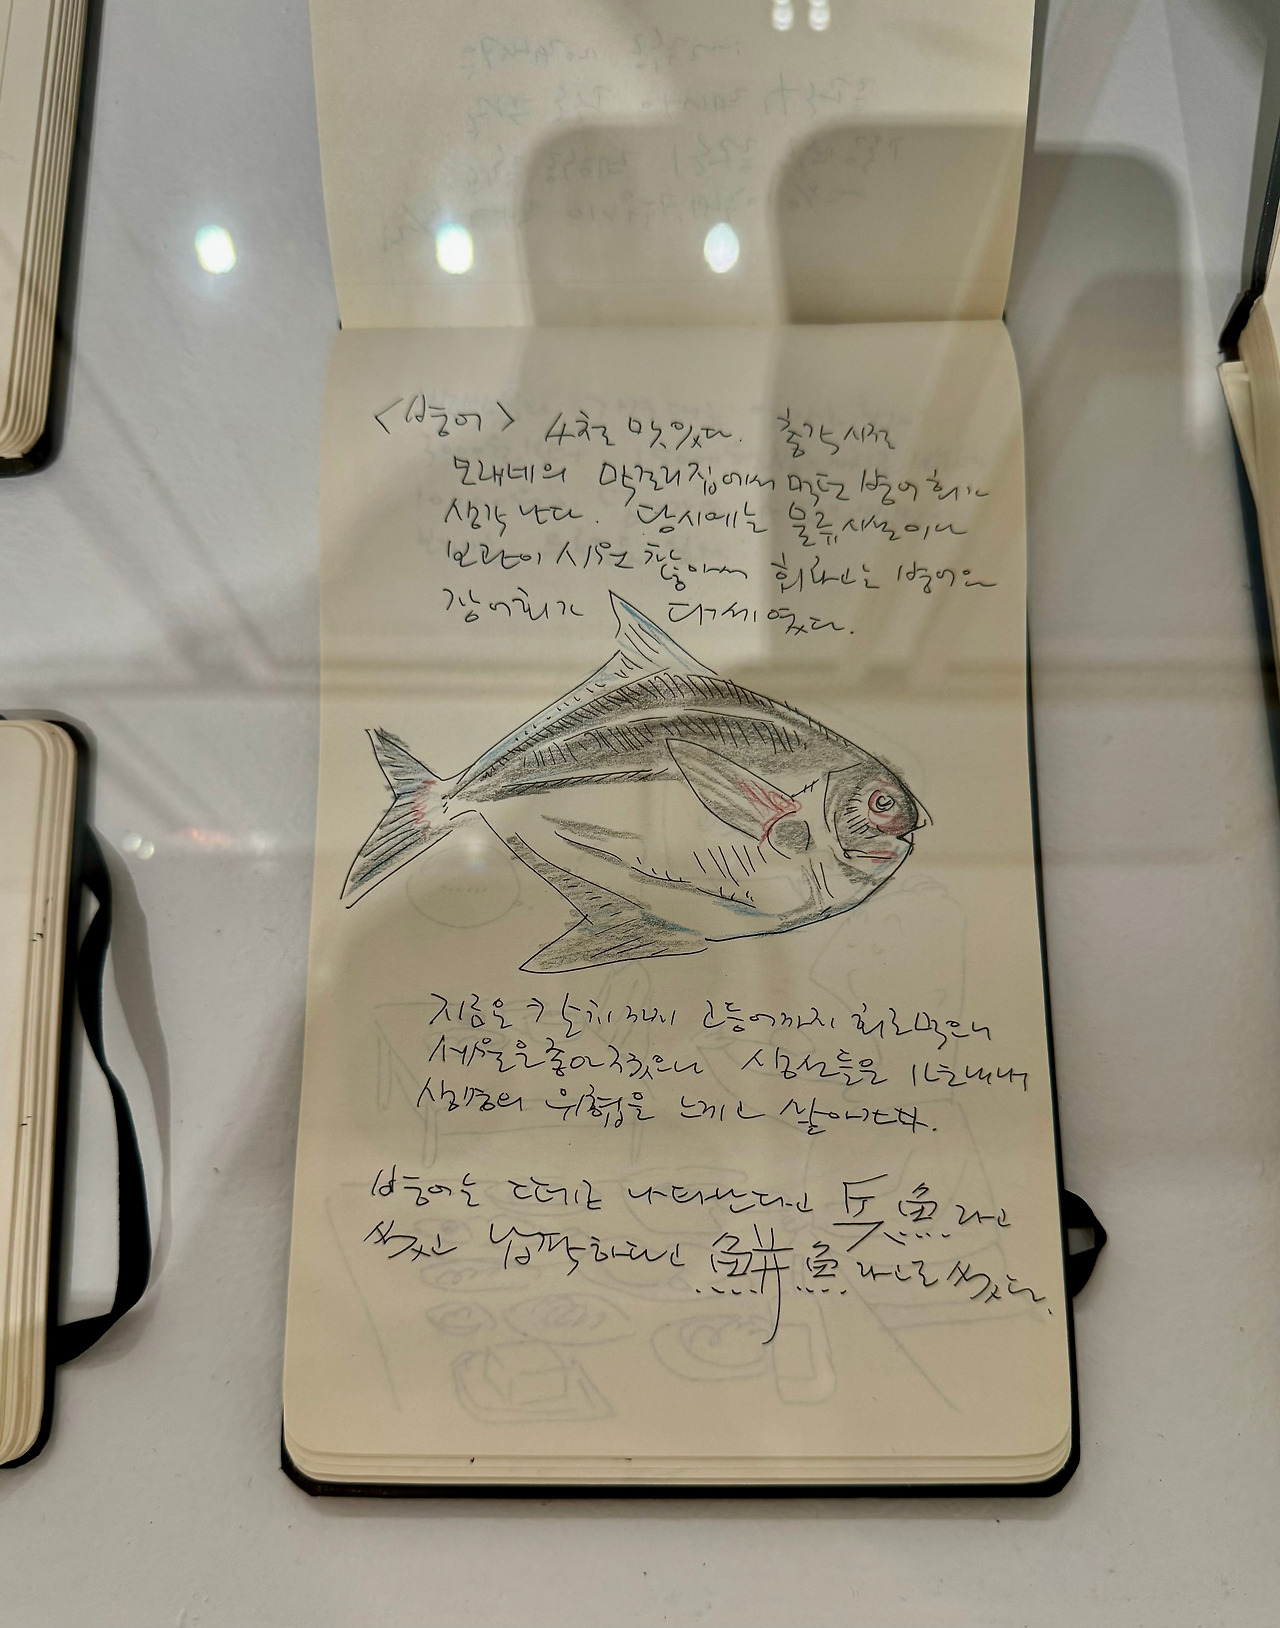 <병어> 4철 맛있다. 총각시절
모래네의 막걸리집에서 먹던 병어회가
생각난다. 당시에는 물류시설이나
보관이 시원찮아서 회라고는 병어와
장어회가 다세였다.
지금은 갈치까지 고등어까지 회로 먹으니
세월은 좋아졌으나 생선들은
생명의 위협을 느끼고 살아간다.
병어는 떼로 나타난다고 兵魚라고
썼고 납작하다고 鮩魚라고도 썼다.